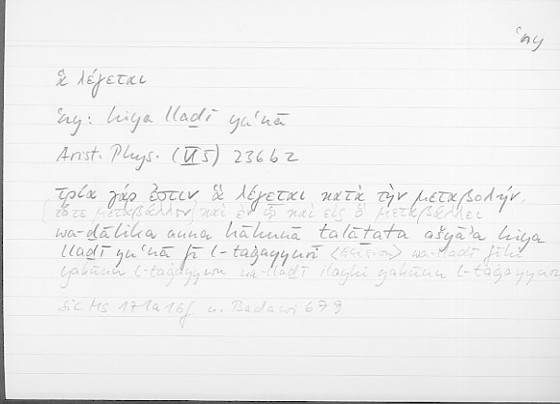 ʿny
ἃ λέγεται
ʿny: hiya llaḏī yuʿnā
Arist. Phys. (VI 5) 236b2
τρία γάρ ἐστιν ἃ λέγεται κατὰ τὴν μεταβολήν,
(τό τε μεταβάλλον) καὶ ἐν ᾧ καὶ εἰς ὃ μεταβάλλει
wa-ḏālika anna hāhunā ṯalāṯata ašyāʾa hiya
llaḏī yuʿnā fī l-taġayyuri wa-llaḏī fīhi
yakūnu l-taġayyuru wa-llaḏī ilayhi yakūnu l-taġayyuru
Sic Ms 171a16f u. Badawi 679